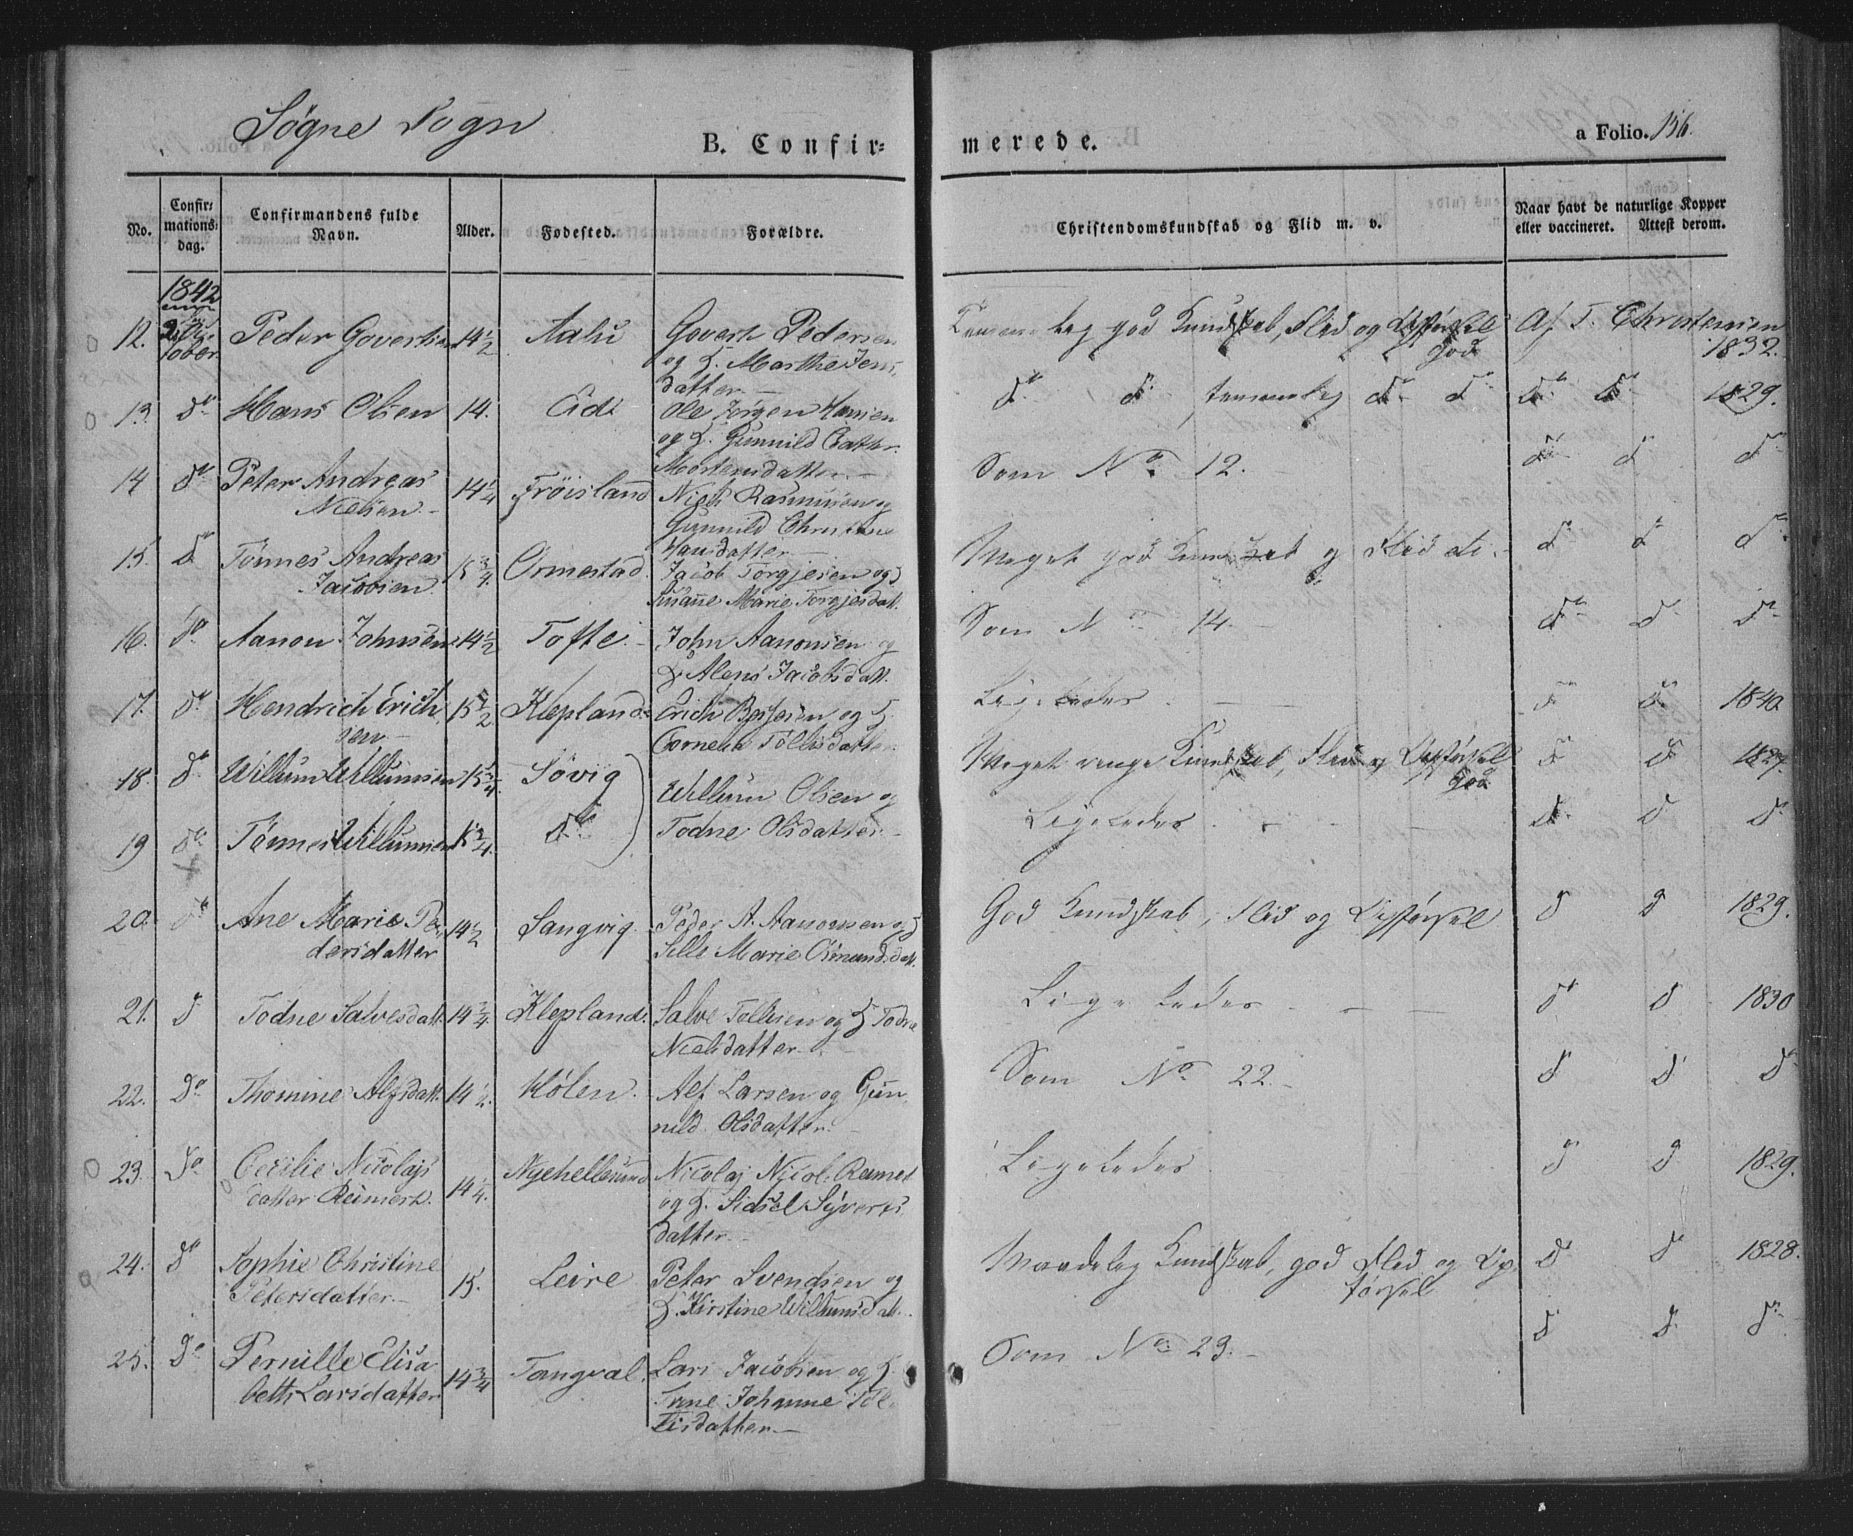 Søgne Sogn
B. Confir-
merede.
a Folio. 156.
No.
Confir-
mations-
dag.
Confirmandens fulde
Navn.
Alder.
Fødested.
Forældre.
Christendomskundskab og Flid m. v.
Naar havt de naturlige Kopper
eller vaccineret. Attest derom.
1842
tober
12. Peder Govertsen 14½ Govert Pedersen
og Marthe Jens
datter
god Kundskab, Flid og Opførsel
God
Af T. Christensen
1832.
13. do Hans Olsen 14. Eide Ole Jørgen Hansen
og Gunnild Cath.
Mortensdatter
do do temmelig do do do do 1829.
14 do Peter Andreas
Nielsen
14¼ Frøisland Niels Rasmussen og
Gunnild Christine
Hansdatter
Som No 12. do do do
15. do Tønnes Andreas
Jacobsen
15¾ Ormestad. Jacob Torgjesen og
Susanne Marie Torgjesdatt.
Meget god Kundskab og Flid do do do
16. do Aanon Johnsen 14½ Tofte John Aanonsen og
Jacobsdatt.
Som No 14. do do do
17. do Hendrich Erich
sen
15½ Klepland Erich og
Tollisdatter
Ligeledes do do 1840
18. do Willum Willumsen 15¾ Søvig Willum Olsen og
Todne Olsdatter
Meget ringe Kundskab, Flid og Opførsel
God
do do 1827.
19 do Tønnes Willumsen 15¾ do
Ligeledes do do do
20. do Ane Marie Pe
dersdatter
14½ Langvig Peder A. Aanonsen og
Sille Marie Osmundsdatt.
God Kundskab, Flid og Opførsel do do 1829.
21. do Todne Salvesdatt. 14¾ Klepland. Salve Tollisen og Todne
Nielsdatter
Ligeledes do do 1830
22. do Thomine Alfsdatt. 14½ Hølen. Alf Larsen og Gun
nild Olsdatter
Som No 22. do do do
23. do Cecilie Nicolajs
datter Reimers.
14¼ Nyehellesund Nicolaj Nicol. Reimers
og Sidsel Syverts
datter
Ligeledes do do 1829.
24. do Sophie Christine
Petersdatter
15. Leire Peter Svendsen og
Kirstine Willumsdatt.
Maadelig Kundskab, god Flid og Op
førsel
do do 1828.
25. do Pernille Elisa
beth Larsdatter
14¾ Tangval. Lars Jacobsen og
Johanne Tol
lisdatter
Som No 23. do do do